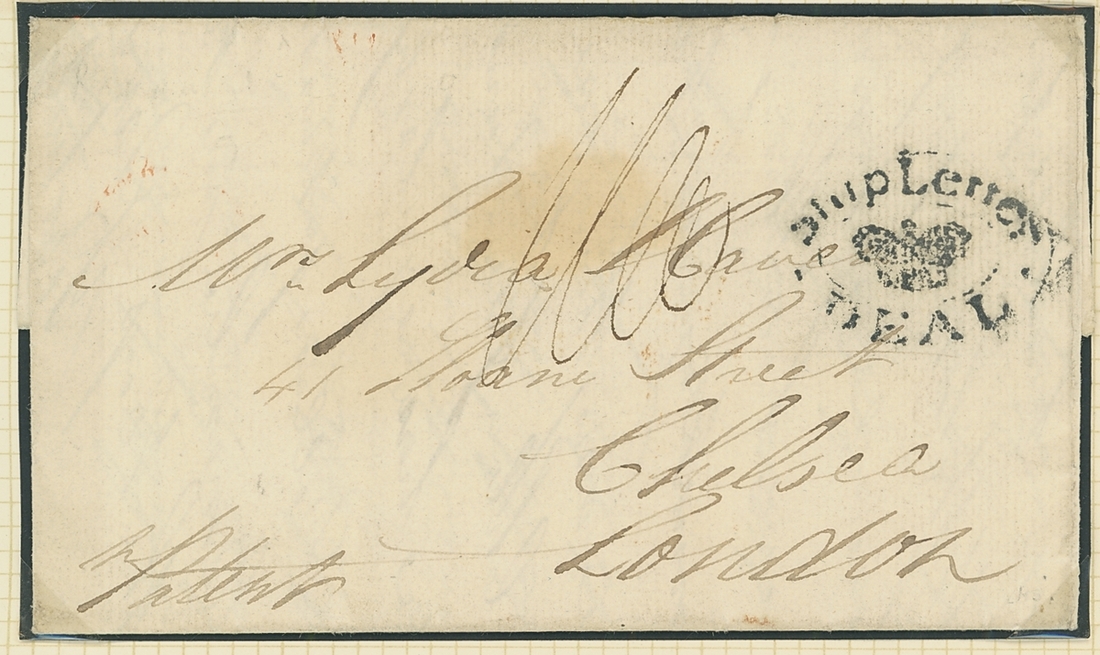 Ship Letter
DEAL
Mrs. Lydia
41 Sloane Street
Chelsea
London
Patent